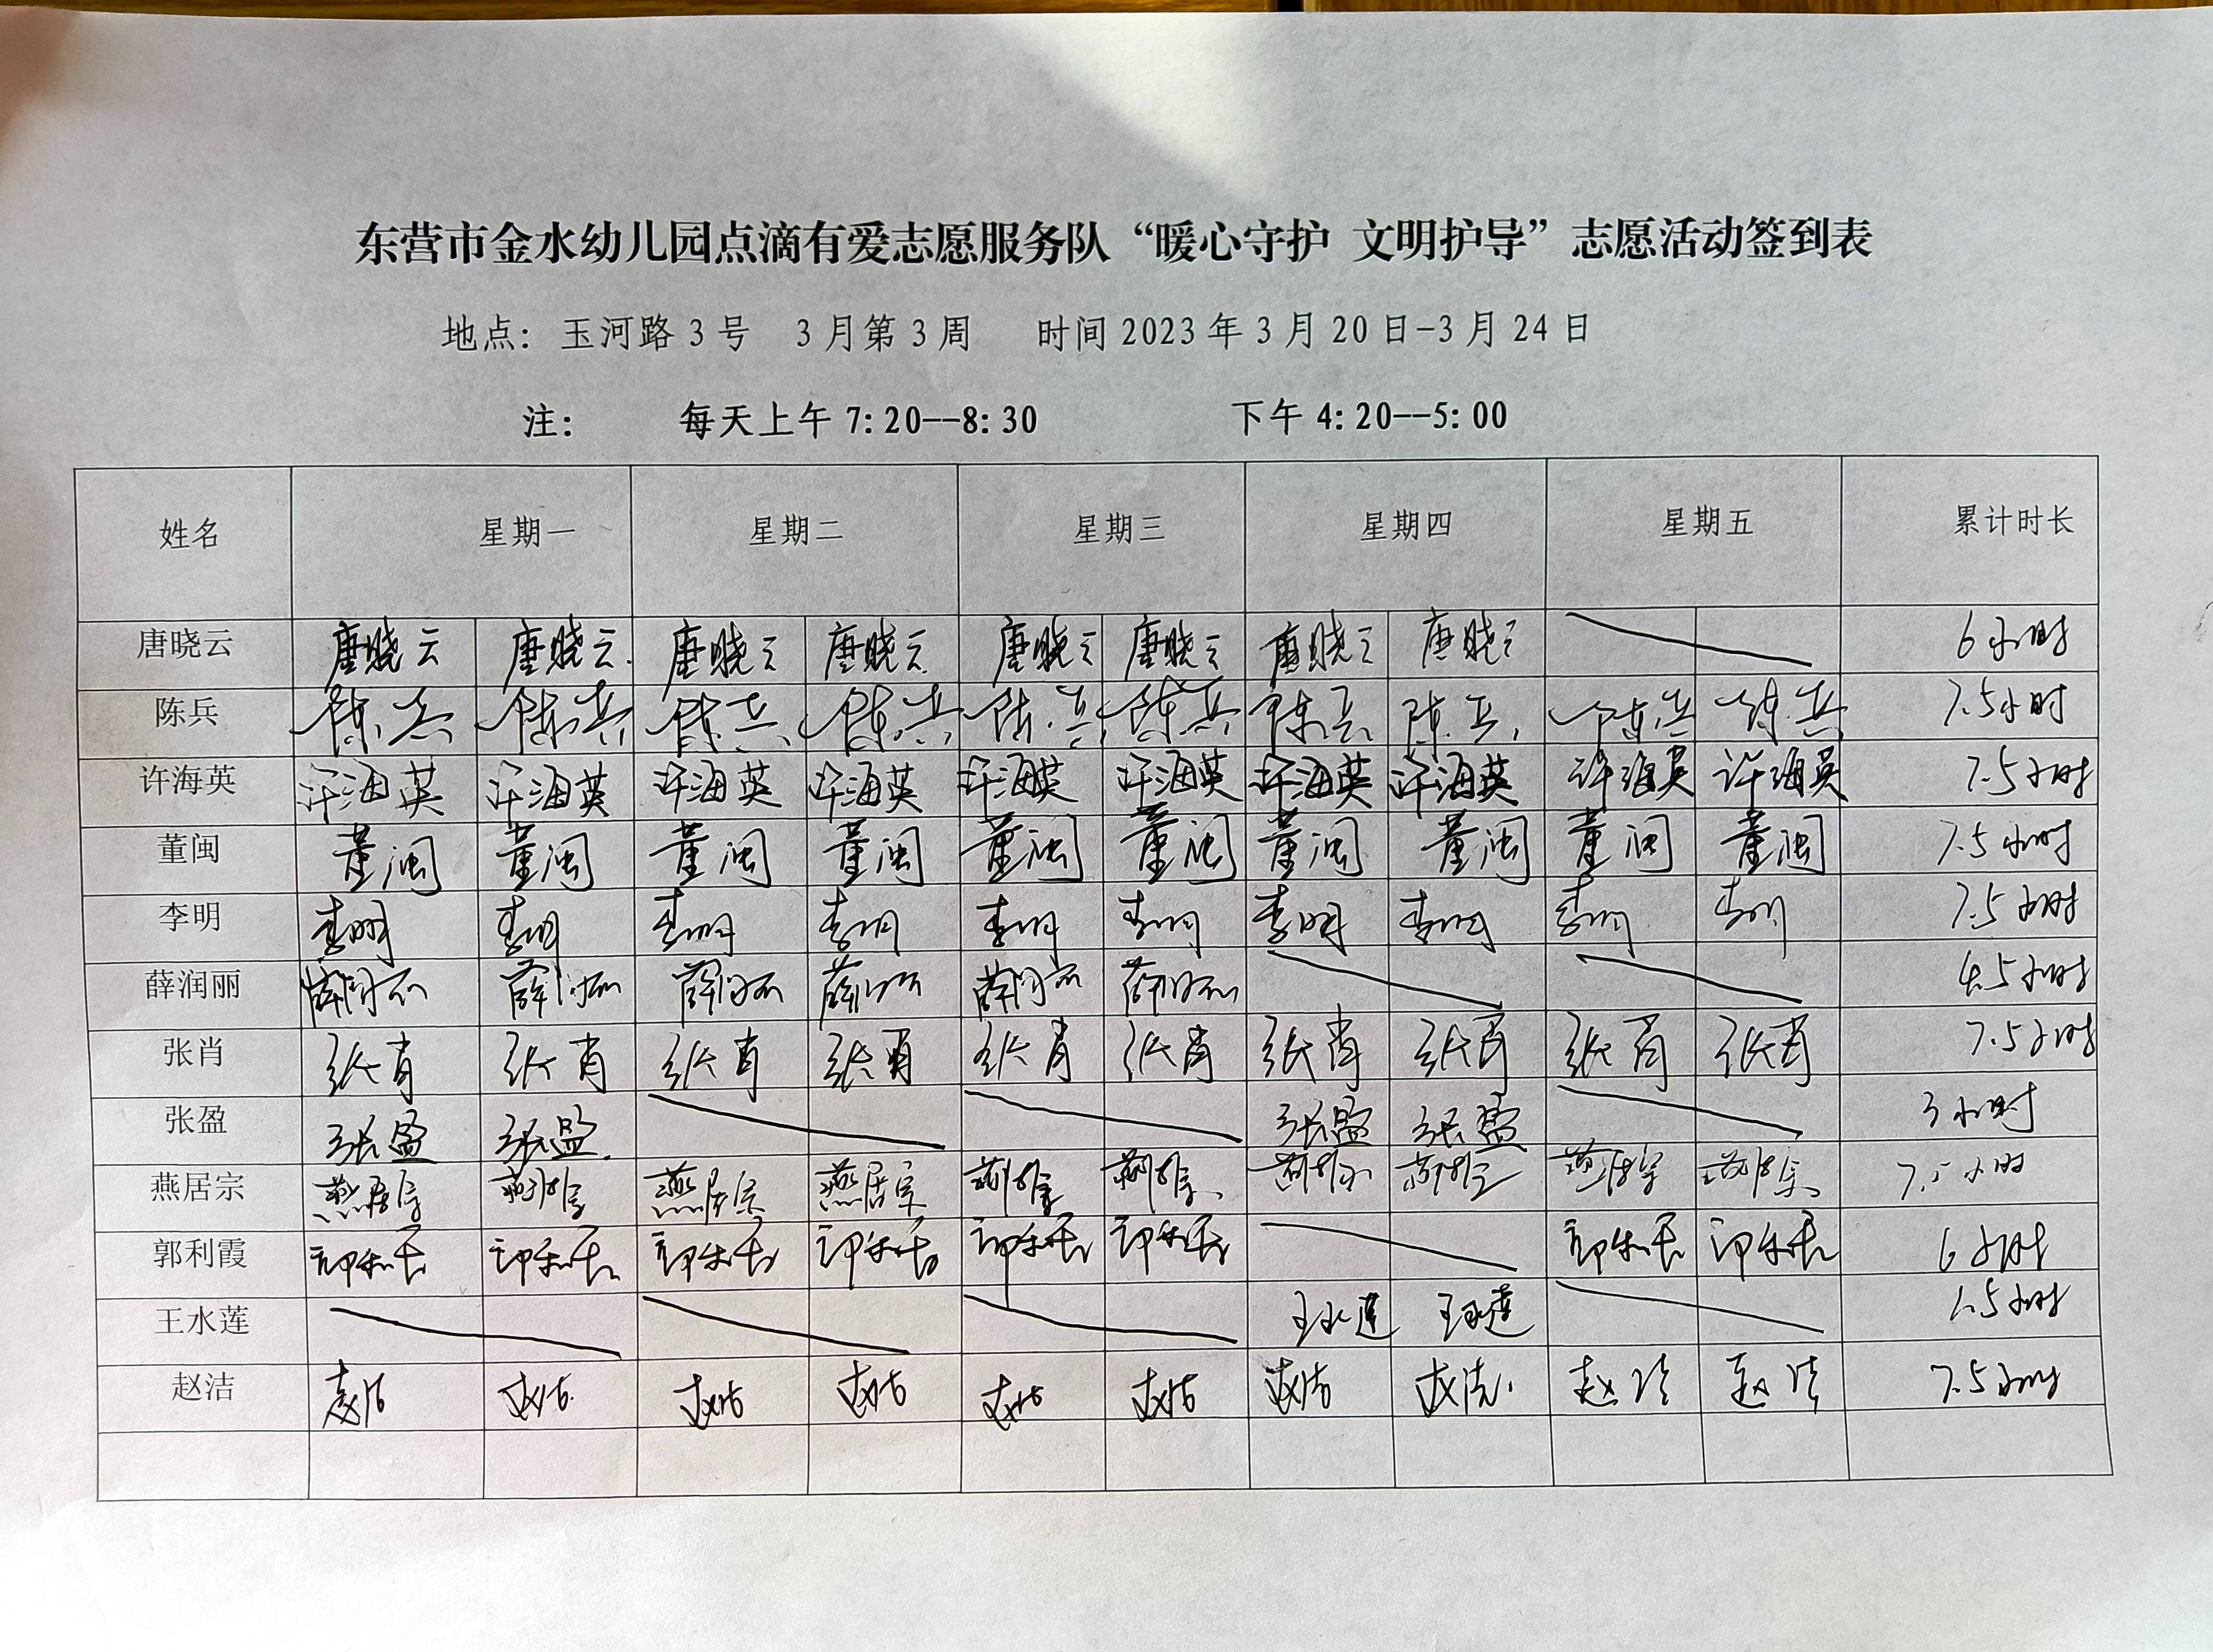 东营市金水幼儿园点滴有爱志愿服务队“暖心守护 文明护导”志愿活动签到表
地点：玉河路3号 3月第3周 时间2023年3月20日-3月24日
注： 每天上午7:20--8:30 下午4:20--5:00
姓名 星期一 星期二 星期三 星期四 星期五 累计时长
唐晓云 唐晓云 唐晓云 唐晓云 唐晓云 唐晓云 唐晓云 唐晓云 唐晓云 6小时
陈兵 陈兵 陈兵 陈兵 陈兵 陈兵 陈兵 陈兵 陈兵 陈兵 陈兵 7.5小时
许海英 许海英 许海英 许海英 许海英 许海英 许海英 许海英 许海英 许海英 许海英 7.5小时
董闽 董闽 董闽 董闽 董闽 董闽 董闽 董闽 董闽 董闽 董闽 7.5小时
李明 李明 李明 李明 李明 李明 李明 李明 李明 李明 李明 7.5小时
薛润丽 薛润丽 薛润丽 薛润丽 薛润丽 薛润丽 薛润丽 4.5小时
张肖 张肖 张肖 张肖 张肖 张肖 张肖 张肖 张肖 张肖 张肖 7.5小时
张盈 张盈 张盈 张盈 张盈 3小时
燕居宗 燕居宗 燕居宗 燕居宗 燕居宗 燕居宗 燕居宗 燕居宗 燕居宗 燕居宗 燕居宗 7.5小时
郭利霞 郭利霞 郭利霞 郭利霞 郭利霞 郭利霞 郭利霞 郭利霞 郭利霞 6小时
王水莲 王水莲 王水莲 1.5小时
赵洁 赵洁 赵洁 赵洁 赵洁 赵洁 赵洁 赵洁 赵洁 赵洁 赵洁 7.5小时